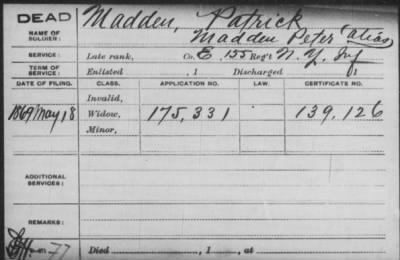 DEAD Madden, Patrick
NAME OF SOLDIER: Madden Peter "alias"
SERVICE: Late rank, Co. E, 155 Reg't N. Y. Inf
TERM OF SERVICE: Enlisted , 1 Discharged , 1
DATE OF FILING. CLASS. APPLICATION NO. LAW. CERTIFICATE NO.
Invalid,
1869 May 18 Widow, 175,331 139,126
Minor,
ADDITIONAL SERVICES:
REMARKS:
77 Died , 1 , at